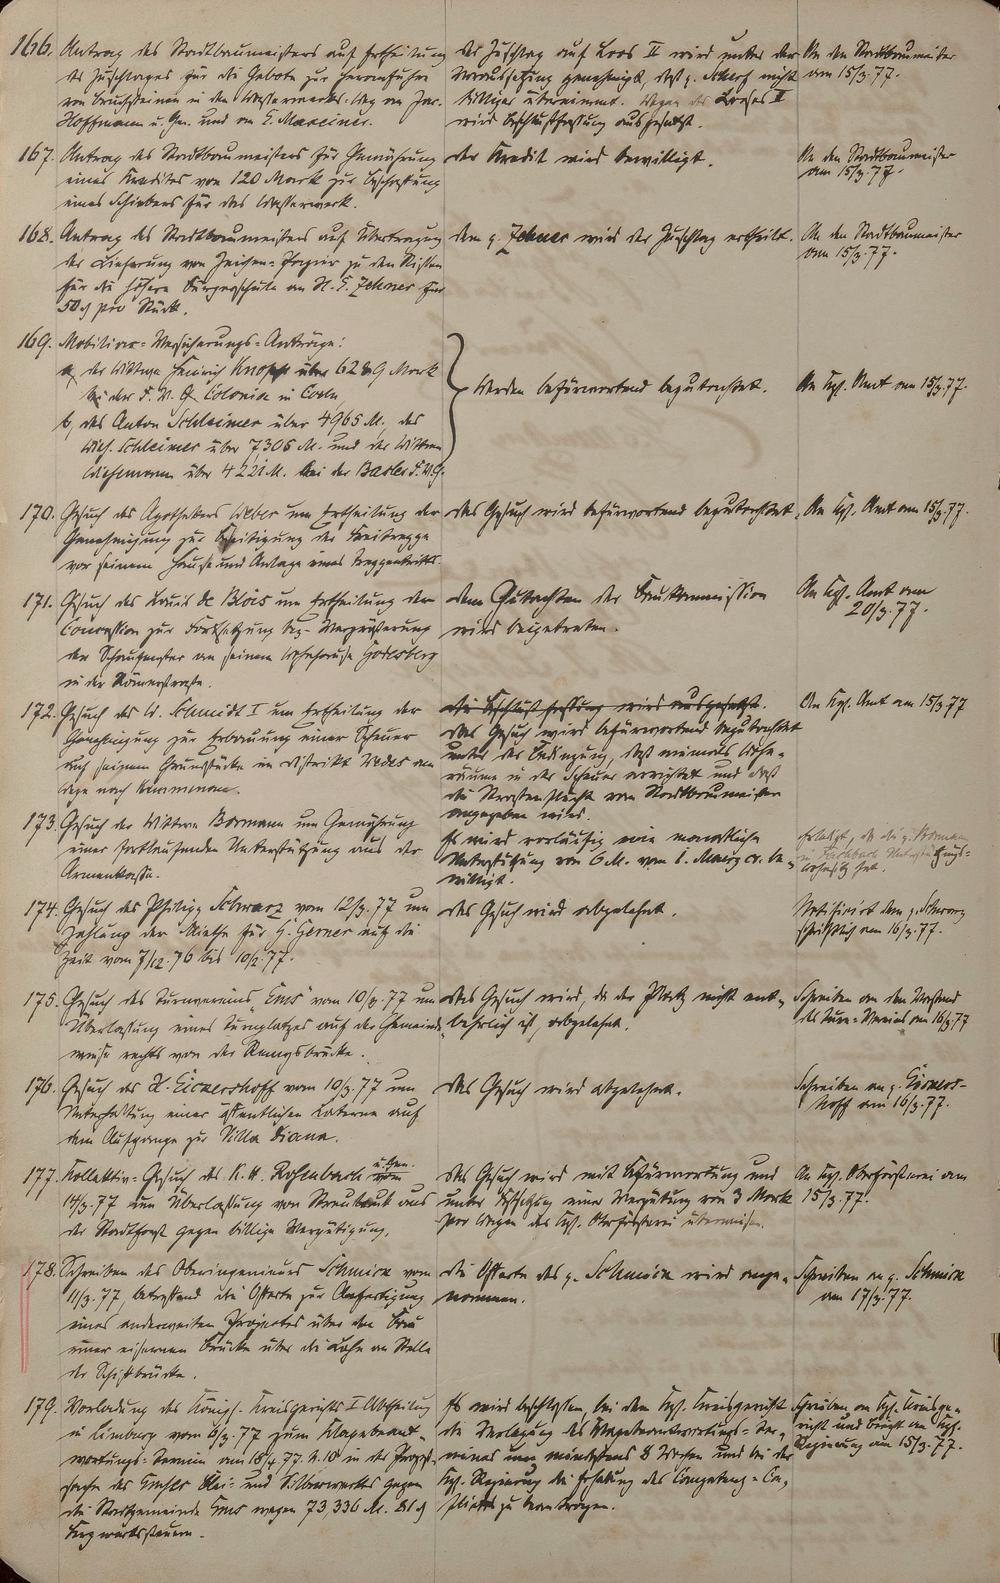 166. Antrag des Stadtbaumeisters auf Ertheilung
des Zuschlages für die Gebote zur Heranfuhr
von Bruchsteinen in den Wasserwerks-Weg an Jac.
Hoffmann u. Gen. und an C. Massiner.
Der Zuschlag auf Loos II wird unter der
Voraussetzung genehmigt, daß p. Scherf nicht
billiger übernimmt. Wegen des Looses II
wird Beschlußfassung ausgesetzt.
An den Stadtbaumeister
am 15/3.77.
167. Antrag des Stadtbaumeisters für Gewährung
eines Kredites von 120 Mark zur Beschaffung
eines Schiebers für das Wasserwerk.
Der Kredit wird bewilligt.
An den Stadtbaumeister
am 15/3.77.
168. Antrag des Stadtbaumeisters auf Übertragung
der Lieferung von Zeichen-Papier zu den Kisten
für die höhere Bürgerschule an H. C. Zehner für
50 ₰ pro Stück.
Dem p. Zehner wird der Zuschlag ertheilt.
An den Stadtbaumeister
am 15/3.77.
169. Mobiliar-Versicherungs-Anträge:
a, der Wittwe Heinrich Knopp über 6289 Mark
bei der F. V. G. Colonia in Coeln,
b, des Anton Schleimer über 4965 M., des
Wilh. Schleimer über 7306 M. und der Wittwe
über 4221 M. bei der Basler F. V. G.
Werden befürwortend begutachtet.
An Kgl. Amt am 15/3.77.
170. Gesuch des Apothekers Weber um Ertheilung der
Genehmigung zur Beseitigung der Freitreppe
vor seinem Hause und Anlage eines Treppentritts.
Das Gesuch wird befürwortend begutachtet.
An Kgl. Amt am 15/3.77.
171. Gesuch des Louis de Blois um Ertheilung der
Concession zur Fortsetzung bez. Vergrößerung
der Schaufenster an seinem Wohnhause Godesberg
in der Römerstraße.
Dem Gutachten der Baukommission
wird beigetreten.
An Kgl. Amt am
20/3.77.
172. Gesuch des W. Schmidt I um Ertheilung der
Genehmigung zur Erbauung einer Scheuer
auf seinem Grundstücke im Distrikt
nach Kemmenau.
Die Beschlußfassung wird ausgesetzt.
Das Gesuch wird befürwortend begutachtet
unter der Bedingung, daß niemals Wohn-
räume in der Scheuer errichtet und daß
die Straßenflucht vom Stadtbaumeister
angegeben wird.
An Kgl. Amt am 15/3.77
173. Gesuch der Wittwe Bormann um Gewährung
einer fortlaufenden Unterstützung aus der
Armenkasse.
Es wird vorläufig eine monatliche
Unterstützung von 6 M. vom 1. Maerz cr. be-
willigt.
Erledigt, da die p. Bormann
in Unterstützungs-
wohnsitz hat.
174. Gesuch des Philipp Schwarz vom 12/3.77 um
Zahlung der Miethe für H. Gerner auf die
Zeit vom 7/12.76 bis 10/2.77.
Das Gesuch wird abgelehnt.
Notificirt dem p. Schwarz
schriftlich am 16/3.77.
175. Gesuch des Turnvereins „Ems" vom 10/3.77 um
Überlassung eines Turnplatzes auf der Gemeinde-
wiese rechts von der Remysbrücke.
Das Gesuch wird, da der Platz nicht ent-
behrlich ist, abgelehnt.
Schreiben an den Vorstand
des Turn-Vereins am 16/3.77
176. Gesuch des H. Eickershoff vom 10/3.77 um
Unterhaltung einer öffentlichen Laterne auf
dem Aufgange zur Villa Diana.
Das Gesuch wird abgelehnt.
Schreiben an p. Eickers-
hoff am 16/3.77.
177. Kollektiv-Gesuch des K. H. Rosenbach u. Gen. vom
14/3.77 um Überlassung von Streulaub aus
der Stadtforst gegen billige Vergütigung.
Das Gesuch wird mit Befürwortung und
unter Festsetzung einer Vergütung von 3 Mark
per Wagen der Kgl. Oberförsterei überwiesen.
An Kgl. Oberförsterei am
15/3.77.
178. Schreiben des Oberingenieurs Schmick vom
11/3.77, betreffend die Offerte zur Anfertigung
eines anderweiten Projectes über den Bau
einer eisernen Brücke über die Lahn an Stelle
der Schiffbrücke.
Die Offerte des p. Schmick wird ange-
nommen.
Schreiben an p. Schmick
am 17/3.77.
179. Vorladung des Königl. Kreisgerichts I Abtheilung
in Limburg vom 6/3.77 zum Klagebeant-
wortungs-Termin am 18/4.77. V. 10 in der Prozeß-
sache des Emser Blei- und Silberwerkes gegen
die Stadtgemeinde Ems wegen 73,336 M. 81 ₰
Bergwerkssteuern.
Es wird beschlossen, bei dem Kgl. Kreisgericht
die Verlegung des Klagebeantwortungs-Ter-
mines um mindestens 8 Wochen und bei der
Kgl. Regierung die Erhebung des Competenz-Con-
flicts zu beantragen.
Schreiben an Kgl. Kreisge-
richt und Bericht an Kgl.
Regierung am 15/3.77.